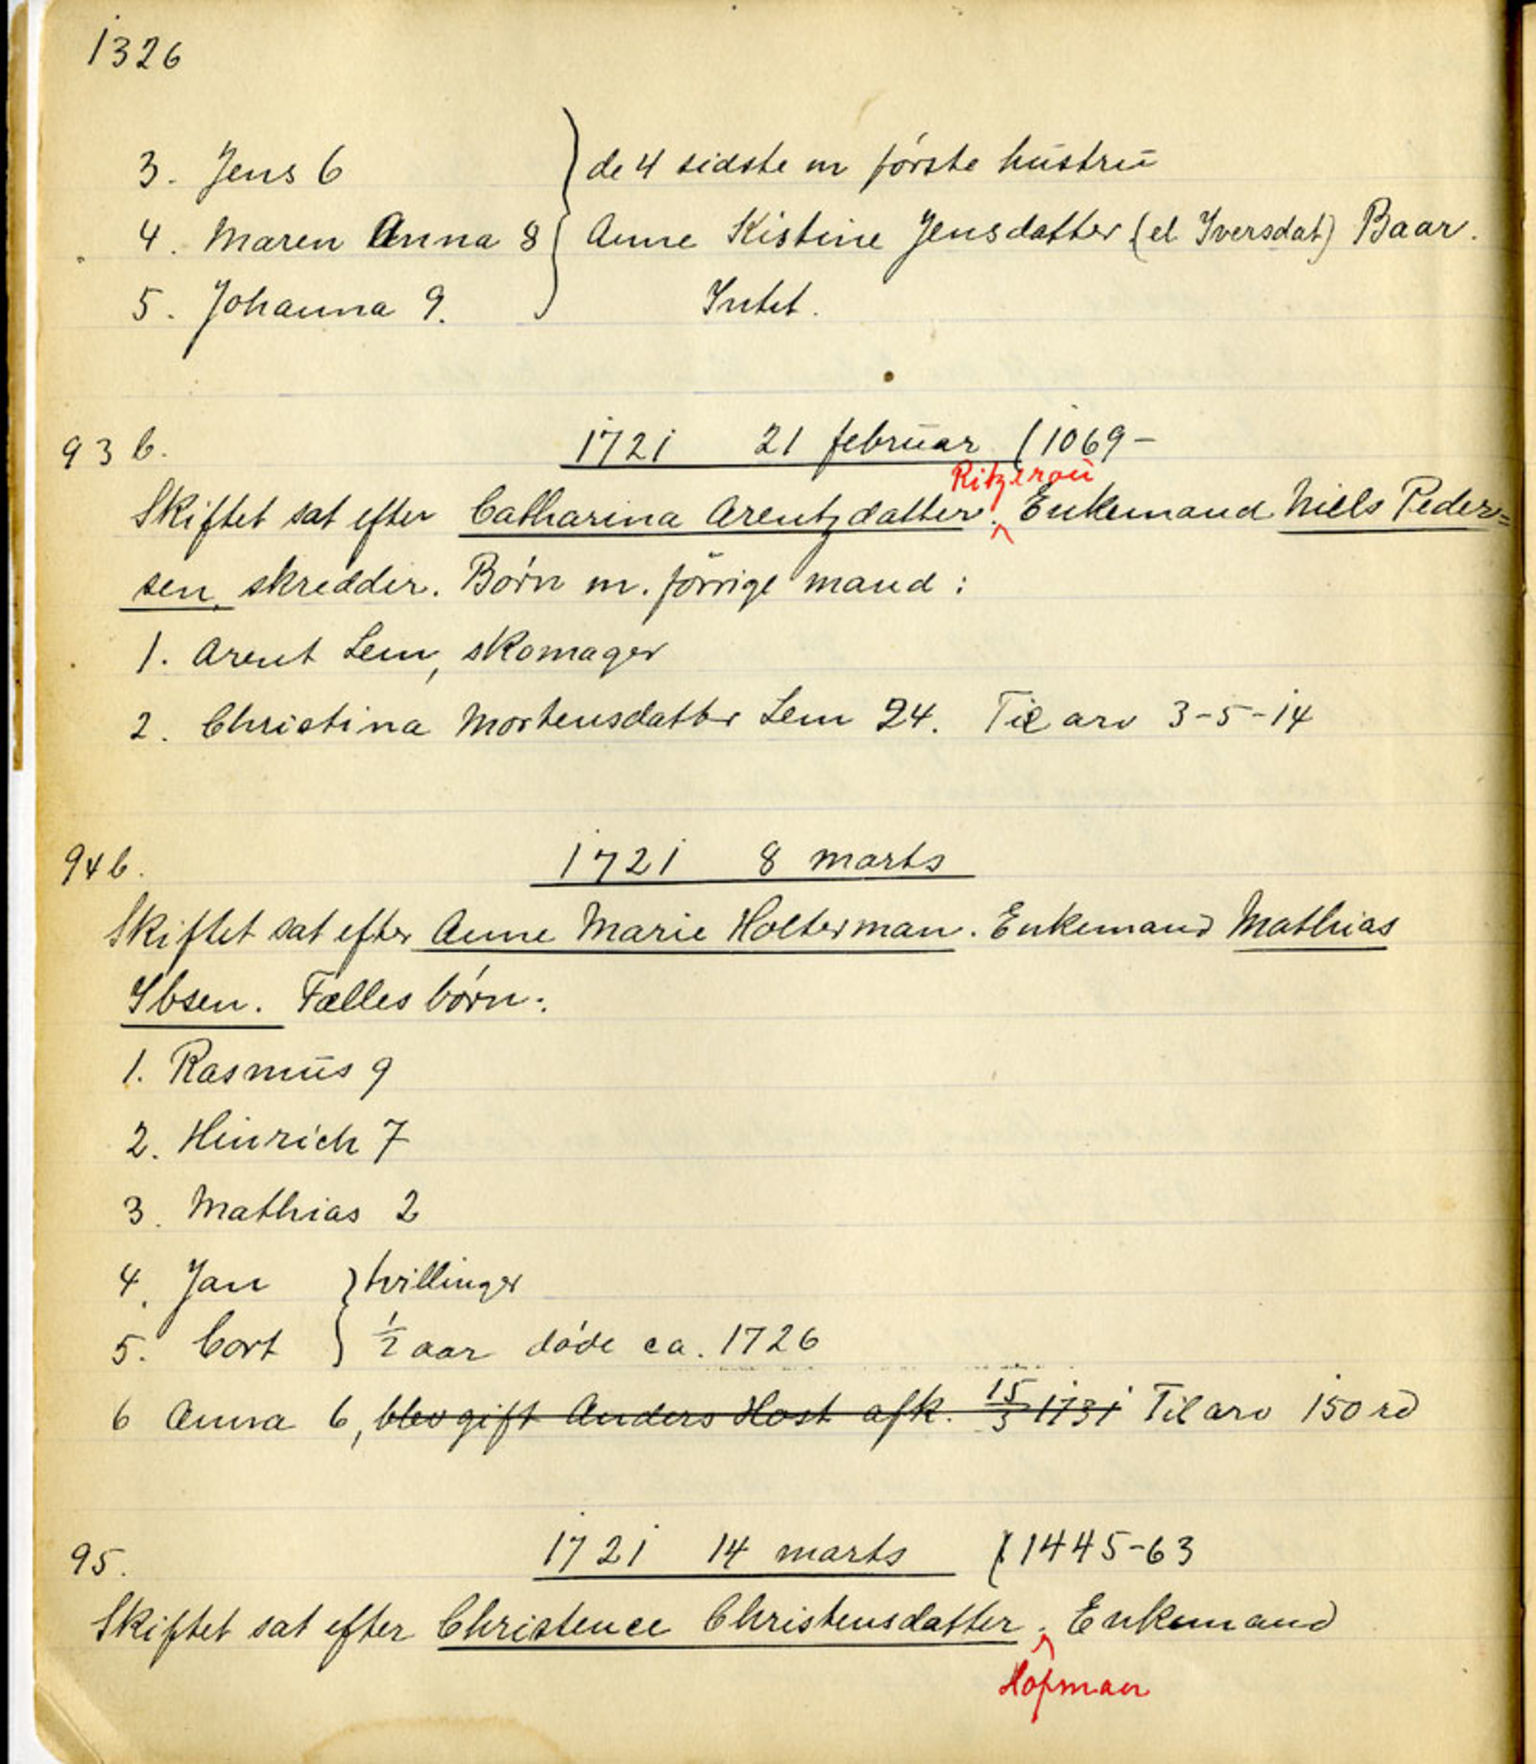 1326
3. Jens 6 } de 4 sidste m første hustru
4. Maren Anna 8 } Anne Kistine Jensdatter (el Iversdat) Baar.
5. Johanna 9. } Intet.
93 b. 1721 21 februar (1069-
Ritzerou
Skiftet sat efter Catharina Arentzdatter. Enkemand Niels Peder=
sen, skredder. Børn m. forrige mand:
1. Arent Lem, skomager
2. Christina Mortensdatter Lem 24. Til arv 3-5-14
94 b. 1721 8 marts
Skiftet sat efter Anne Marie Holterman. Enkemand Mathias
Ibsen. Fælles børn:
1. Rasmus 9
2. Hinrich 7
3. Mathias 2
4. Jan } tvillinger
5. Cort } ½ aar døde ca. 1726
6 Anna 6, blev gift Anders Host afk. 15/3 1731 Til arv 150 rd
95. 1721 14 marts (1445-63
Skiftet sat efter Christence Christensdatter. Enkemand
Hopman